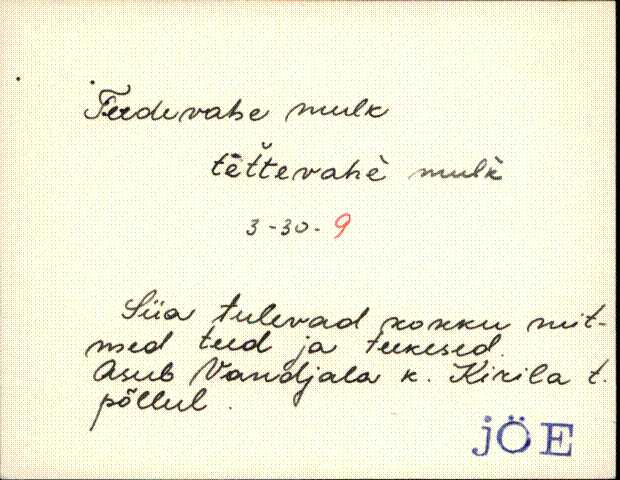 Teedevahe mulk
tĕttevahè mulk
3-30-9
Siia tulevad kokku mit-
med teed ja teekesed.
Asub Vandjala k. Kirila t.
põllul.
jÖE